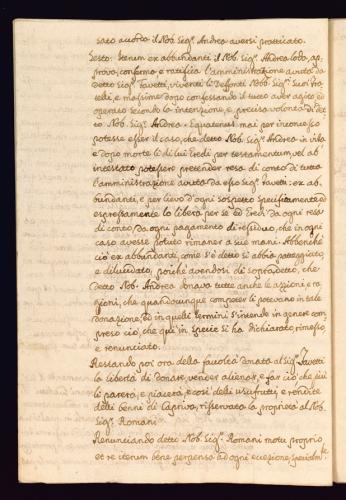 sato acorda il Nob. Sig.r Andrea aversi pratticato.
Sesto: Itenum ex abbundanti il Nob. Sig.r Andrea loda, ap,
prova, conferma e ratifica l'amministratione avuta da
detto Sig.r Favetti, viventi li Deffonti Nobb. Sig.ri suoi
tedi, e massime dopo confessando il tutto aver agito ed
operato secondo la intenzione, e precisa volontà di det,
to Nob. Sig.r Andrea. Equatenus mai per inconcesso
potesse esser il caso, che detto Nob. Sig.r Andrea in vita
e dopo morte li di lui Eredi per testamentum, vel ab
intestato potessero pretender resa di conto di tutta
l'amministratione avuta da esso Sig.r Favetti: ex ab,
bundanti, e per lievo d'ogni sospetto specifitamente ed
espressamente lo libera per se ed Eredi da ogni resa
di conto da ogni pagamento di residuo, che in ogni
caso avesse potuto rimaner a sue mani. Abbenche
ciò ex abbundanti, come s'è detto si abbia patteggiato,
e dilucidato, poiche avendosi di sopra detto, che
detto Nob. Andrea donava tutte anche le azzioni, e ra
gioni, che quandocunque competer li potevano in tale
donazione, ed in quelli termini s'intende in genere com,
preso ciò, che quì in specie si ha dichiarato rimesso,
e renunciato.
Restando poi ora della facoltà donata al Sig.r Favetti
la libertà di donare, vender alienar, e far ciò che più
li parerà, e piacerà, e così delli usufrutti, e rendite
delli benni di Capriva, riservato la proprietà al Nob.
Sig.r Romani
Renunciando detto Nob. Sig.r Romani motu proprio
et re iterum bene perpensa ad ogni eccezione,